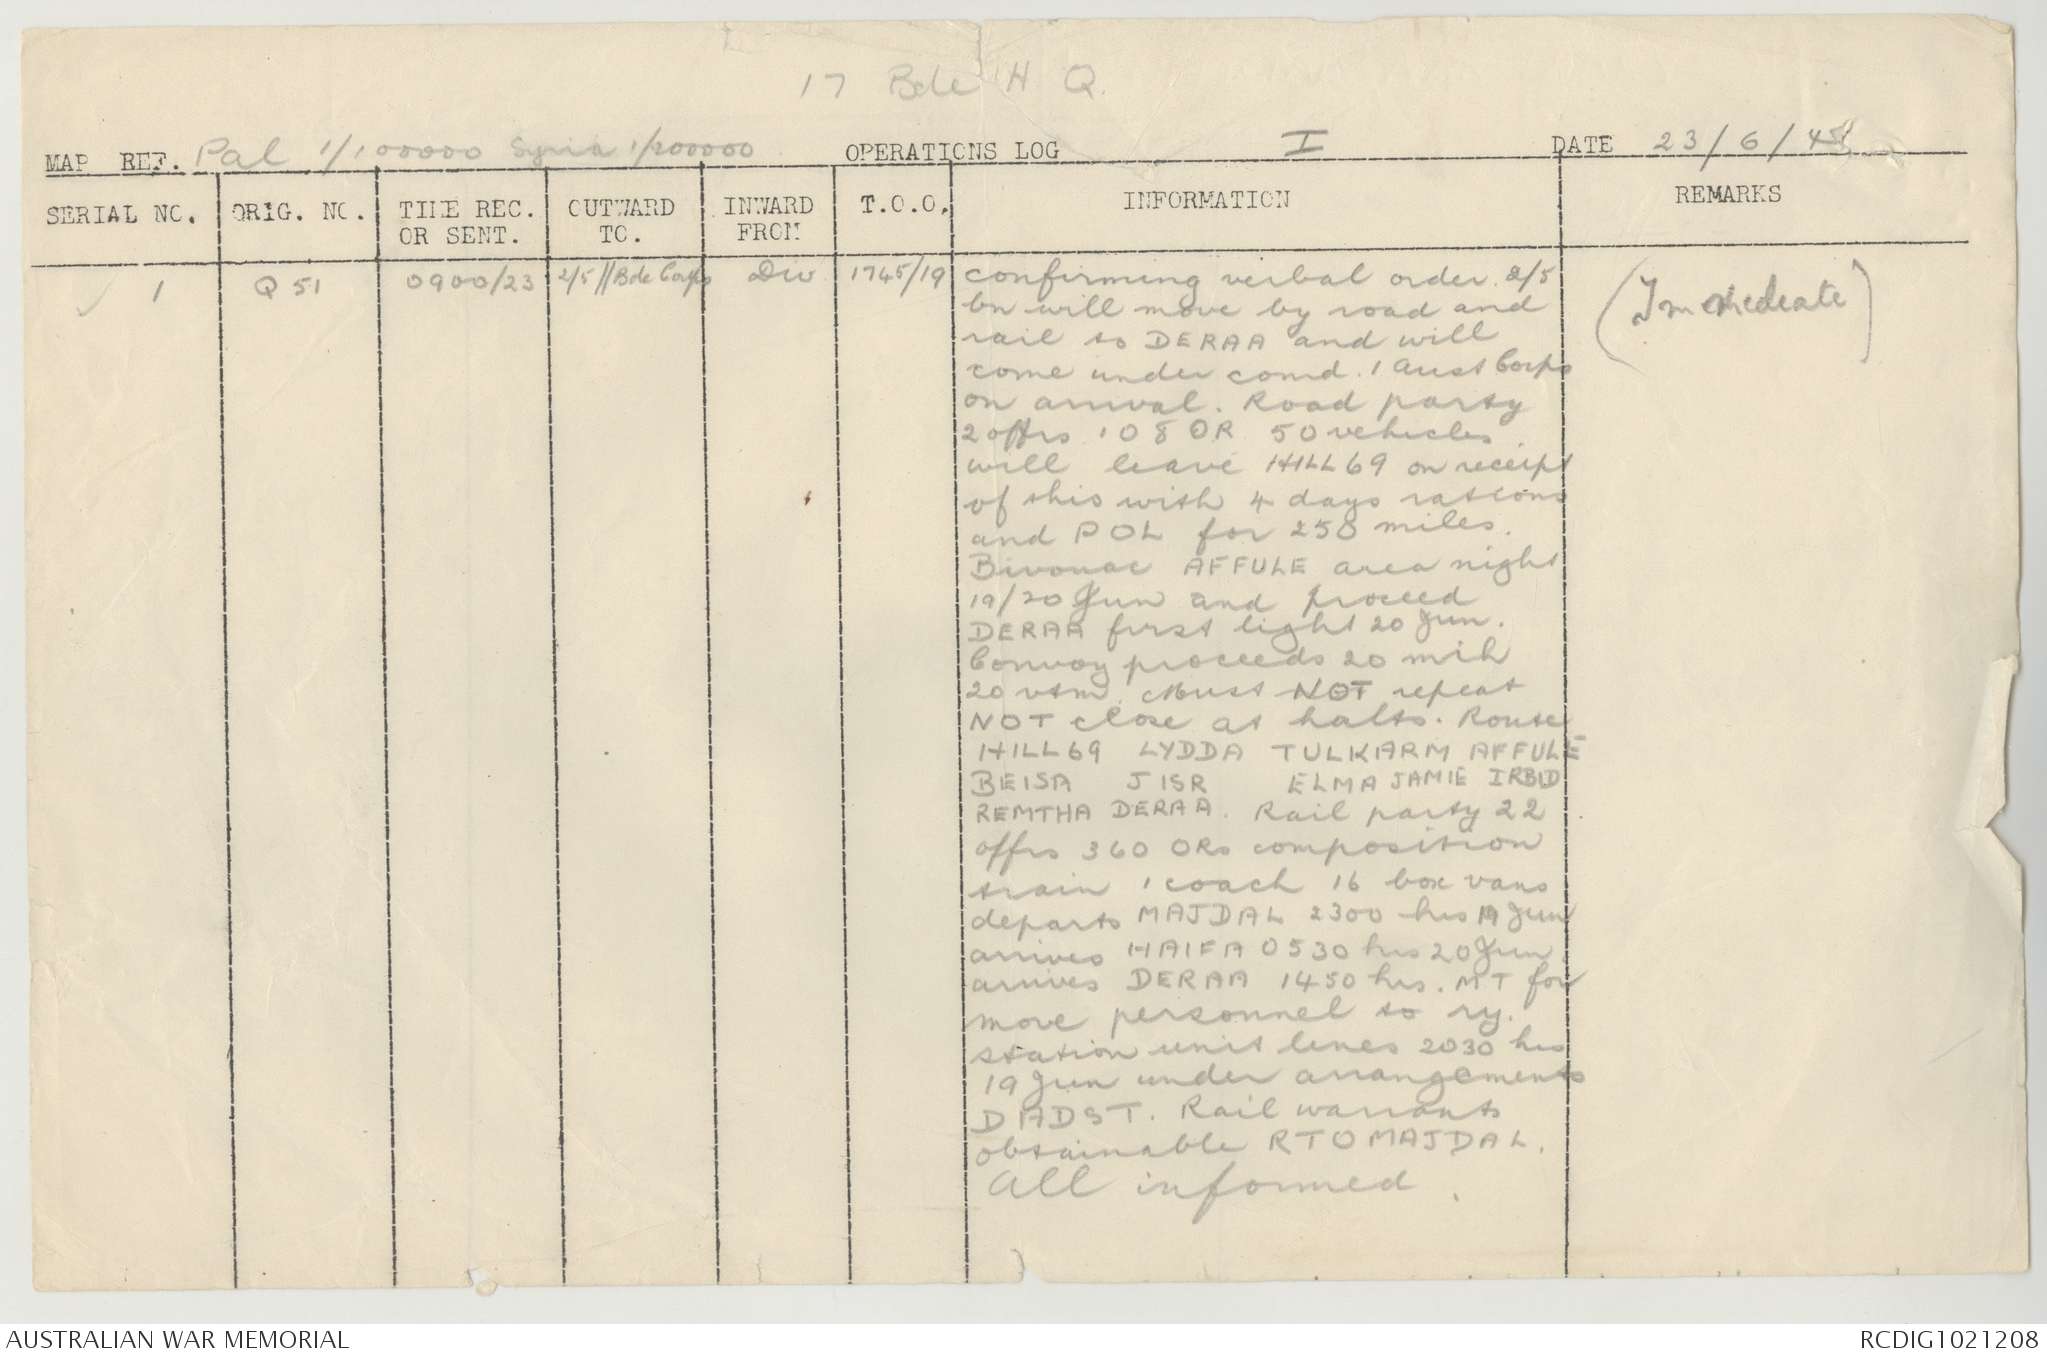 17 Bde H Q.
MAP REF. Pal 1/100000 Syria 1/200000 OPERATIONS LOG I DATE 23/6/4
SERIAL NO. ORIG. NO. TIME REC. OR SENT. OUTWARD TO. INWARD FROM T.O.O. INFORMATION REMARKS
1 Q 51 0900/23 2/5 // Bde Corps Div 1745/19 confirming verbal order. 2/5 (Immediate)
bn will move by road and
rail to DERAA and will
come under comd. 1 Aust Corps
on arrival. Road party
2 offrs 108 OR 50 vehicles
will leave HILL 69 on receipt
of this with 4 days rations
and POL for 250 miles.
Bivouac AFFULE area night
19/20 Jun and proceed
DERAA first light 20 Jun.
Convoy proceeds 20 mih
20 vtm. Must NOT repeat
NOT close at halts. Route
HILL 69 LYDDA TULKARM AFFULE
BEISA JISR ELMAJAMIE IRBID
REMTHA DERAA. Rail party 22
offrs 360 ORs composition
train 1 coach 16 box vans
departs MAJDAL 2300 hrs 19 Jun
arrives HAIFA 0530 hrs 20 Jun.
arrives DERAA 1450 hrs. MT for
move personnel to ry.
station unit lines 2030 hrs
19 Jun under arrangements
DADST. Rail warrants
obtainable RTO MAJDAL.
All informed.
AUSTRALIAN WAR MEMORIAL RCDIG1021208